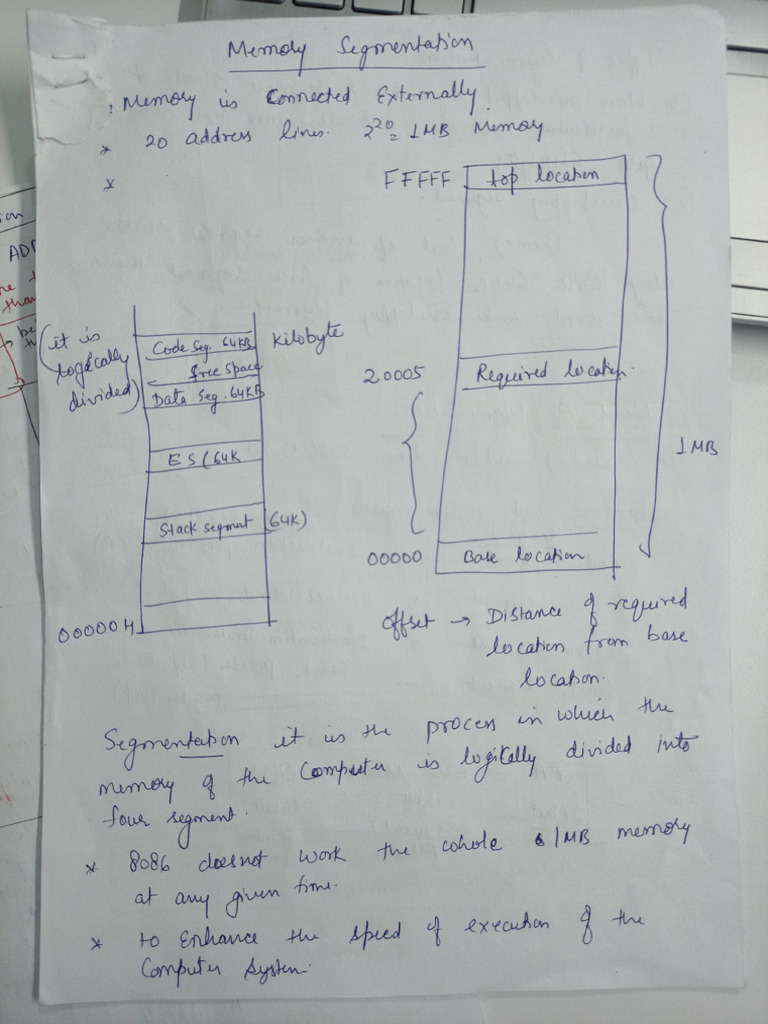 Memory Segmentation
: Memory is Connected Externally.
* 20 address lines. 2^20 = 1MB Memory
*
FFFFF top location
(it is logically divided)
Code Seg. 64KB kilobyte
free space
Data Seg. 64KB
ES (64K
Stack segment (64K)
00000H
20005 Required location
1MB
00000 Base location
offset → Distance of required
location from base
location.
Segmentation it is the process in which the
memory of the Computer is logically divided into
four segment.
* 8086 doesnot work the whole 1MB memory
at any given time.
* to Enhance the speed of execution of the
Computer System.
ion
AD